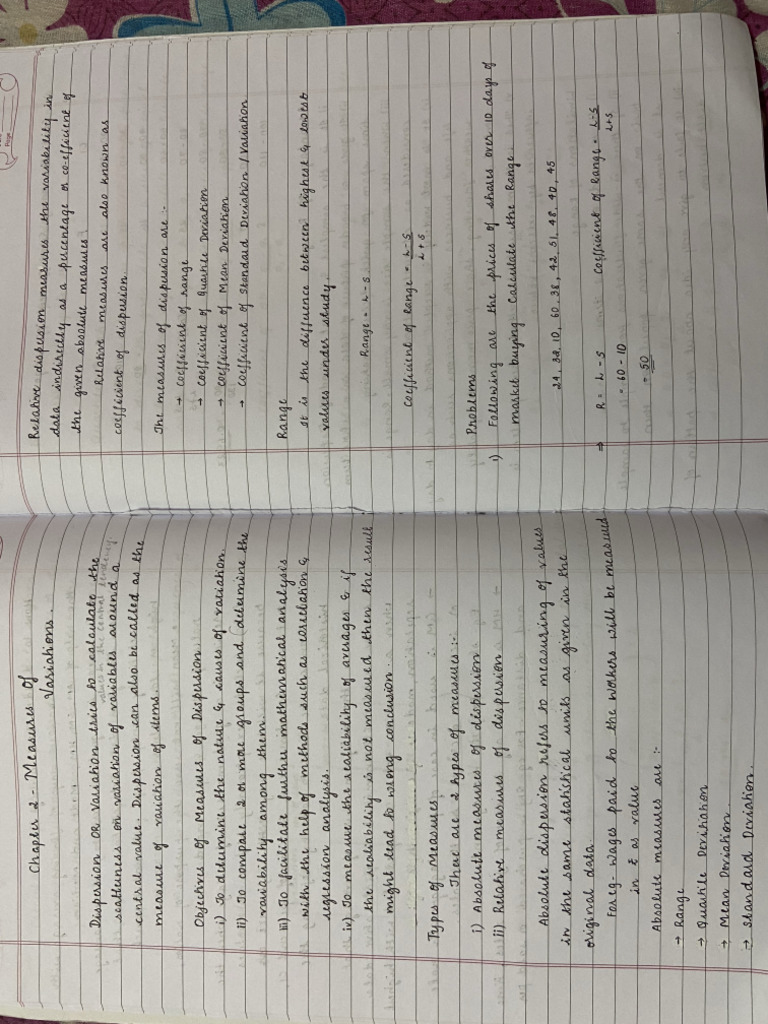 Chapter 2 - Measures of
Variations.
Dispersion OR Variation tries to calculate the
values in the central tendency
scatterness or variation of variables around a
central value. Dispersion can also be called as the
measure of variation of items.
Objectives of Measures of Dispersion
i) To determine the nature & causes of variation.
ii) To compare 2 or more groups and determine the
variability among them.
iii) To facilitate further mathematical analysis
with the help of methods such as correlation &
regression analysis.
iv) To measure the realiability of averages & if
the realiability is not measured then the result
might lead to wrong conclusion.
Types of Measures
There are 2 types of measures :-
i) Absolute measures of dispersion
ii) Relative measures of dispersion
Absolute dispersion refers to measuring of values
in the same statistical units as given in the
original data.
For eg - wages paid to the workers will be measured
in ₹ as value
Absolute measures are :-
→ Range
→ Quartile Deviation
→ Mean Deviation
→ Standard Deviation.
Relative dispersion measures the variability in
data indirectly as a percentage or co-efficient of
the given absolute measures.
Relative measures are also known as
coefficient of dispersion
The measures of dispersion are :-
→ coefficient of range
→ coefficient of Quartile Deviation
→ coefficient of Mean Deviation
→ coefficient of Standard Deviation / Variation
Range
It is the difference between highest & lowest
values under study.
Range = L - S
Coefficient of Range = L - S
L + S
Problems
i) Following are the prices of shares over 10 days of
market buying. Calculate the Range.
24, 32, 10, 60, 38, 42, 51, 48, 40, 45
⇒ R = L - S Coefficient of Range = L - S
L + S
= 60 - 10
= 50